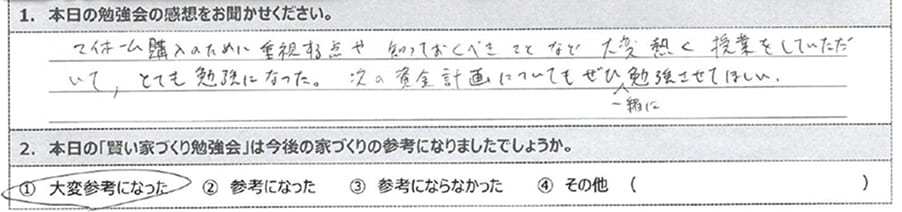 1. 本日の勉強会の感想をお聞かせください。
マイホーム購入のために重視する点や知っておくべきことなど大変熱く授業をしていただ
いて、とても勉強になった。次の資金計画についてもぜひ勉強させてほしい。
一緒に
2. 本日の「賢い家づくり勉強会」は今後の家づくりの参考になりましたでしょうか。
① 大変参考になった ② 参考になった ③ 参考にならなかった ④ その他 ( )